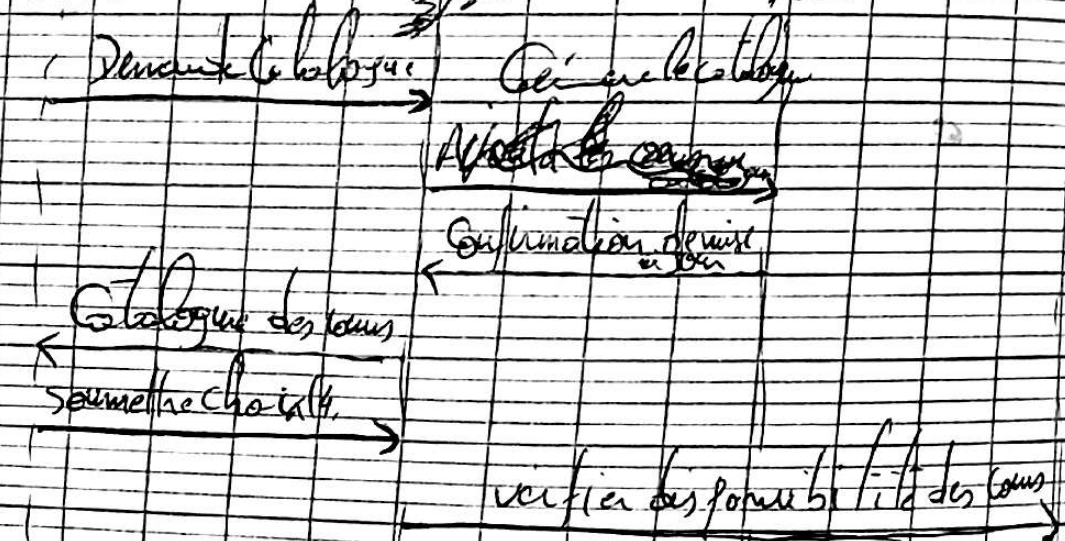 Demande Catalogue
Générer le catalogue
Confirmation de mise
à jour
Catalogue des cours
Soumettre choix (4.
verifier disponibilité des cours